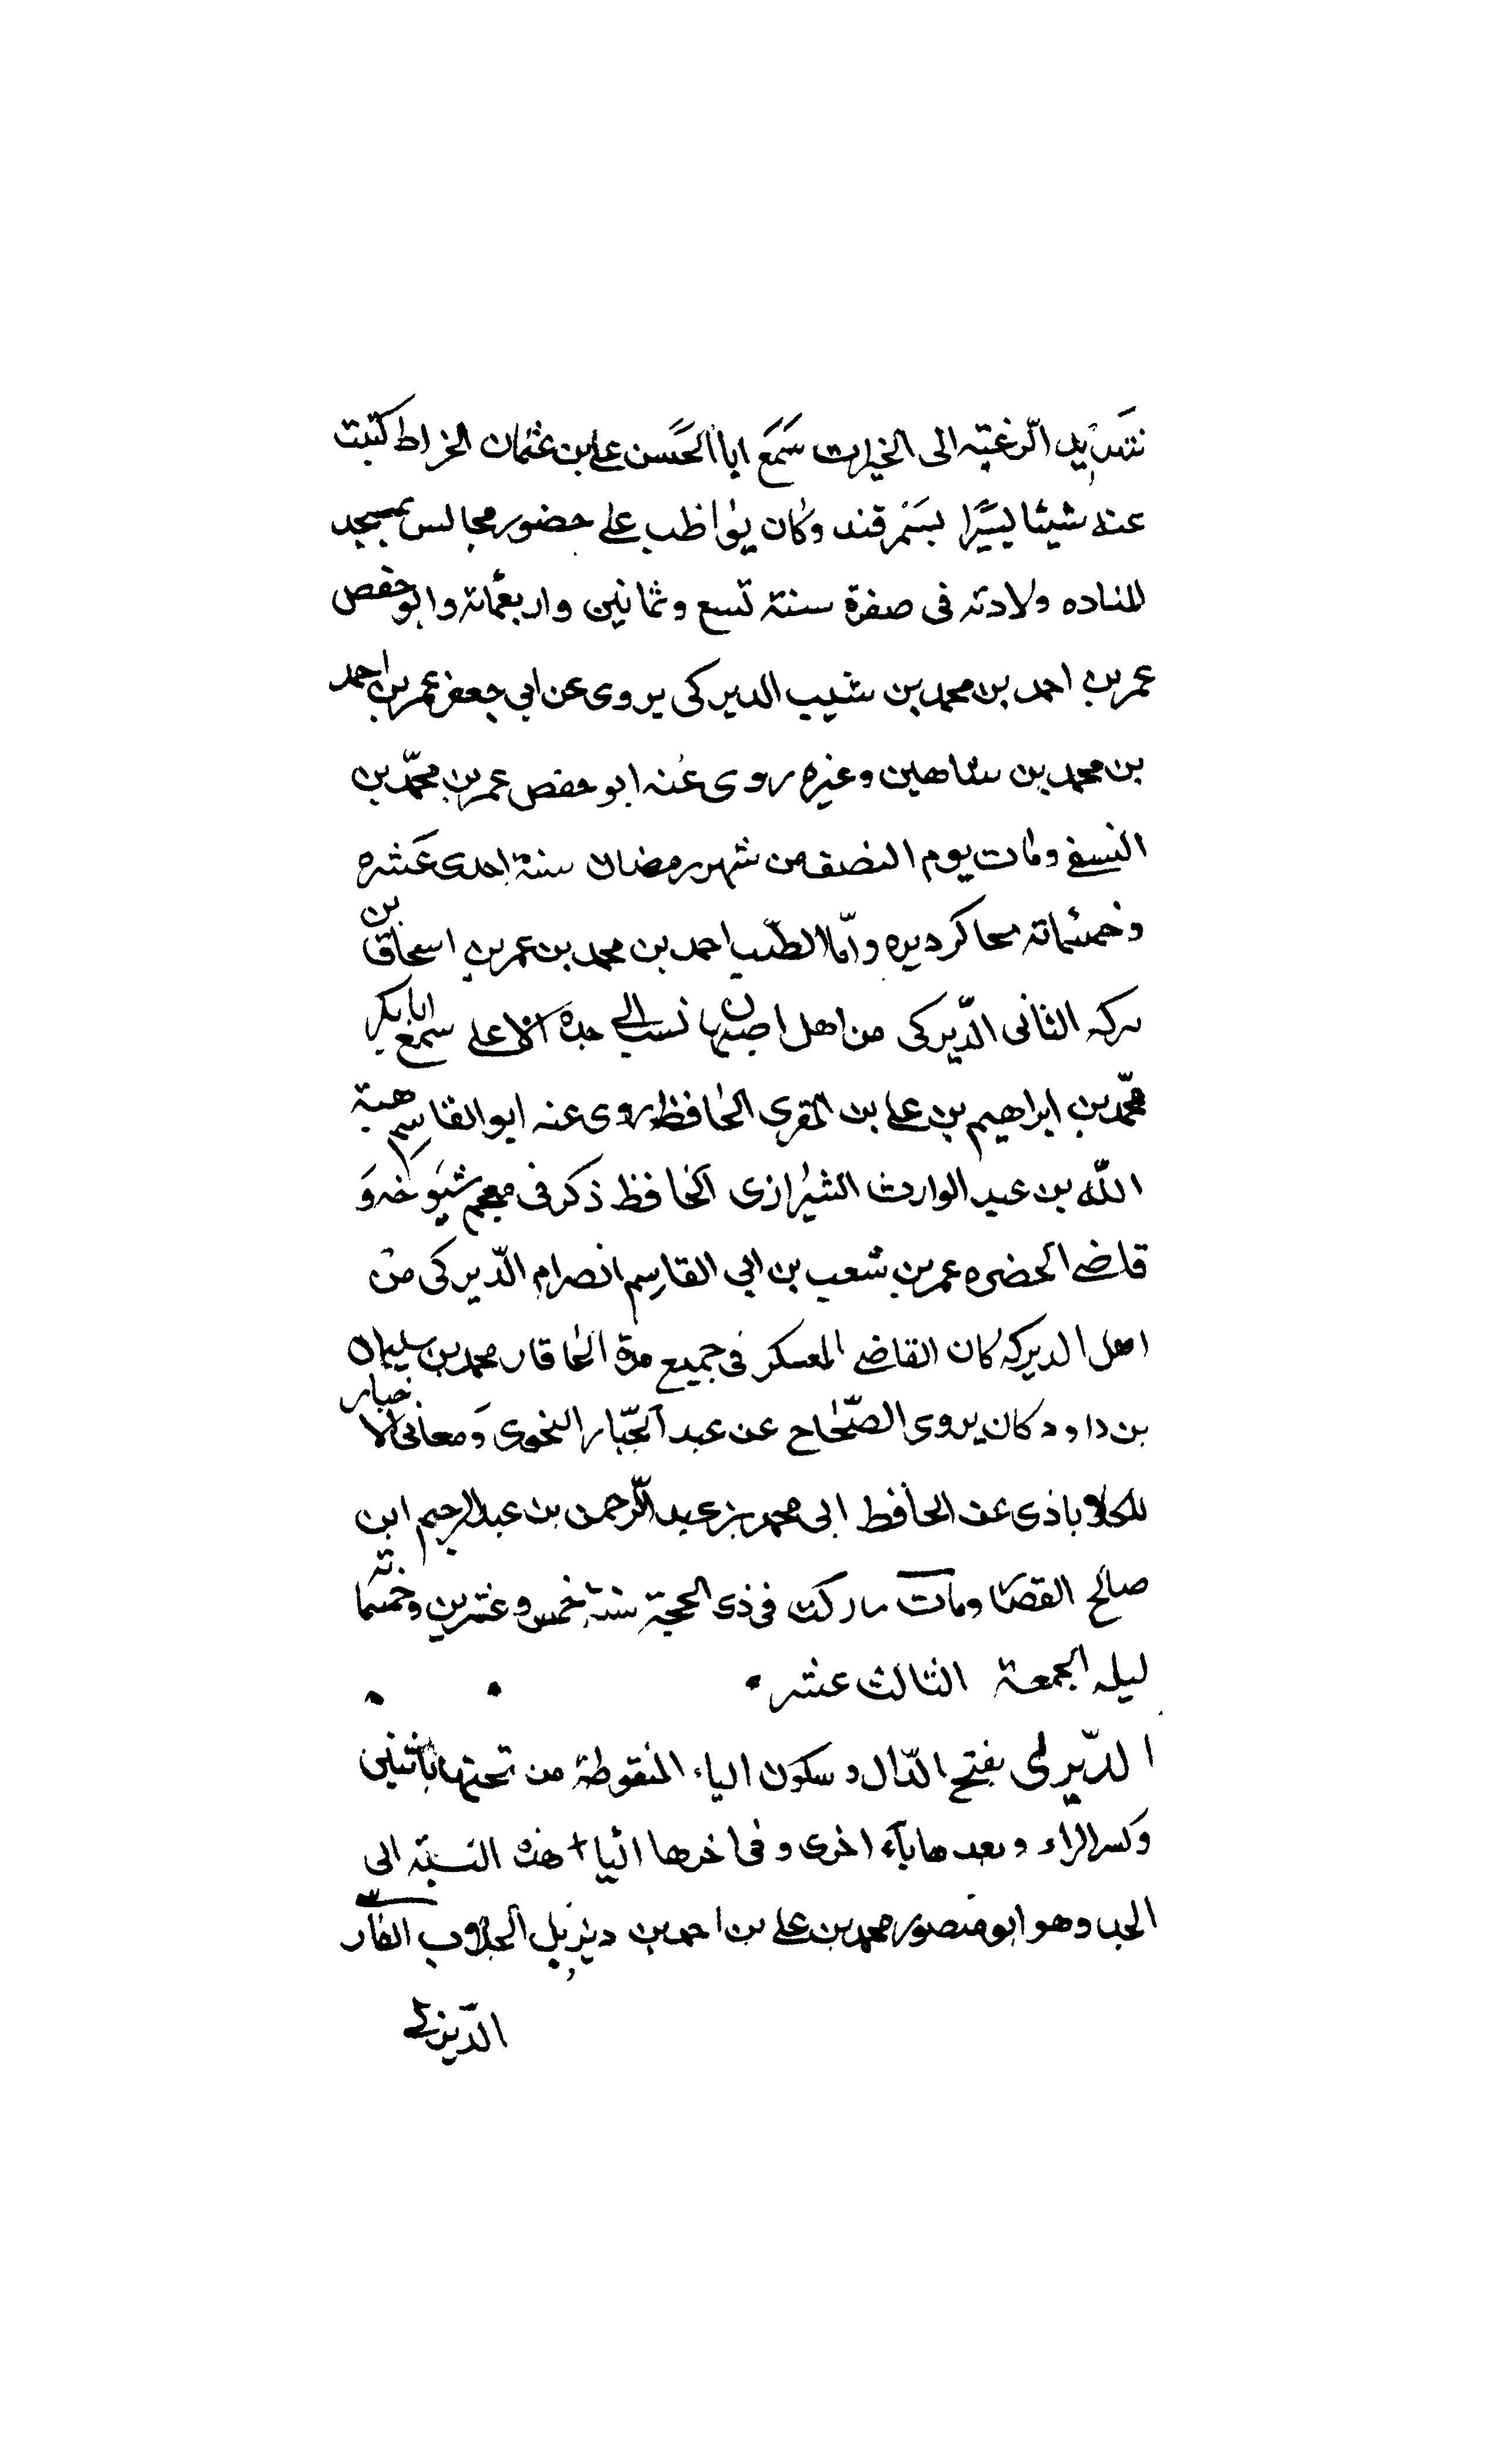 شديد الرغبة الى الخيرات سَمَعَ ابا الحَسن على بن عثمان الخراط كتبت
عنه شيئا يسيرا بسَمْرقند وكان يواظب على حضور مجالس بمسجد
المناده ولادته فى صفرة سنة تسع وثمانين واربعمائة وابو حفص
عمر بن احمد بن محمد بن شيب الديركى يروى عن ابي جعفر عمر بن احمد
بن محمد بن شاهين وغيره روى عنه ابو حفص عمر بن محمّد بن
النسفي ومات يوم النصف من شهر رمضان سنة احدى عَشره
وخمسمائة كرديره وامّا الطيّب احمد بن محمد بن عمر بن اسحاق بن
كه الثانى الدّيركى من اهل اصبهان نسب الى جده الاعلى سمع ابا بكر
محمّد بن ابراهيم بن على بن المقرى الحافظ روى عنه ابو القاسم هبة
اللّه بن عبد الوارث الشيرازى الحافظ ذكر فى معجم شيوخه وَ
قاضى الحضره عمر بن شعب بن ابي القاسِم انصرام الدّيركى من
اهل الديركه كان القاضى المعسكر فى جميع مدة الخاقان محمد بن سليمان
بن داود كان يروى الصّحاح عن عبد الجبّار النخوى وَمعانى الاخبار
للكلاباذى عن الحافظ ابى محمد بن عبد الرّحمن بن عبد الرحيم ابن
صالح القصّا ومات فى ذى الحجة سنة خمس وعشرين وخمسمائة
ليله الجمعة الثالث عشر
الدّيرى بفتح الدّال وسكون الياء المنقوطة من تحتها باثنين
وكسر الراء وبعدها ياء اخرى وفى اخرها الياء هذه النسبة الى
الجد وهو ابو منصور محمد بن على بن احمد بن ديزيل الجلاب